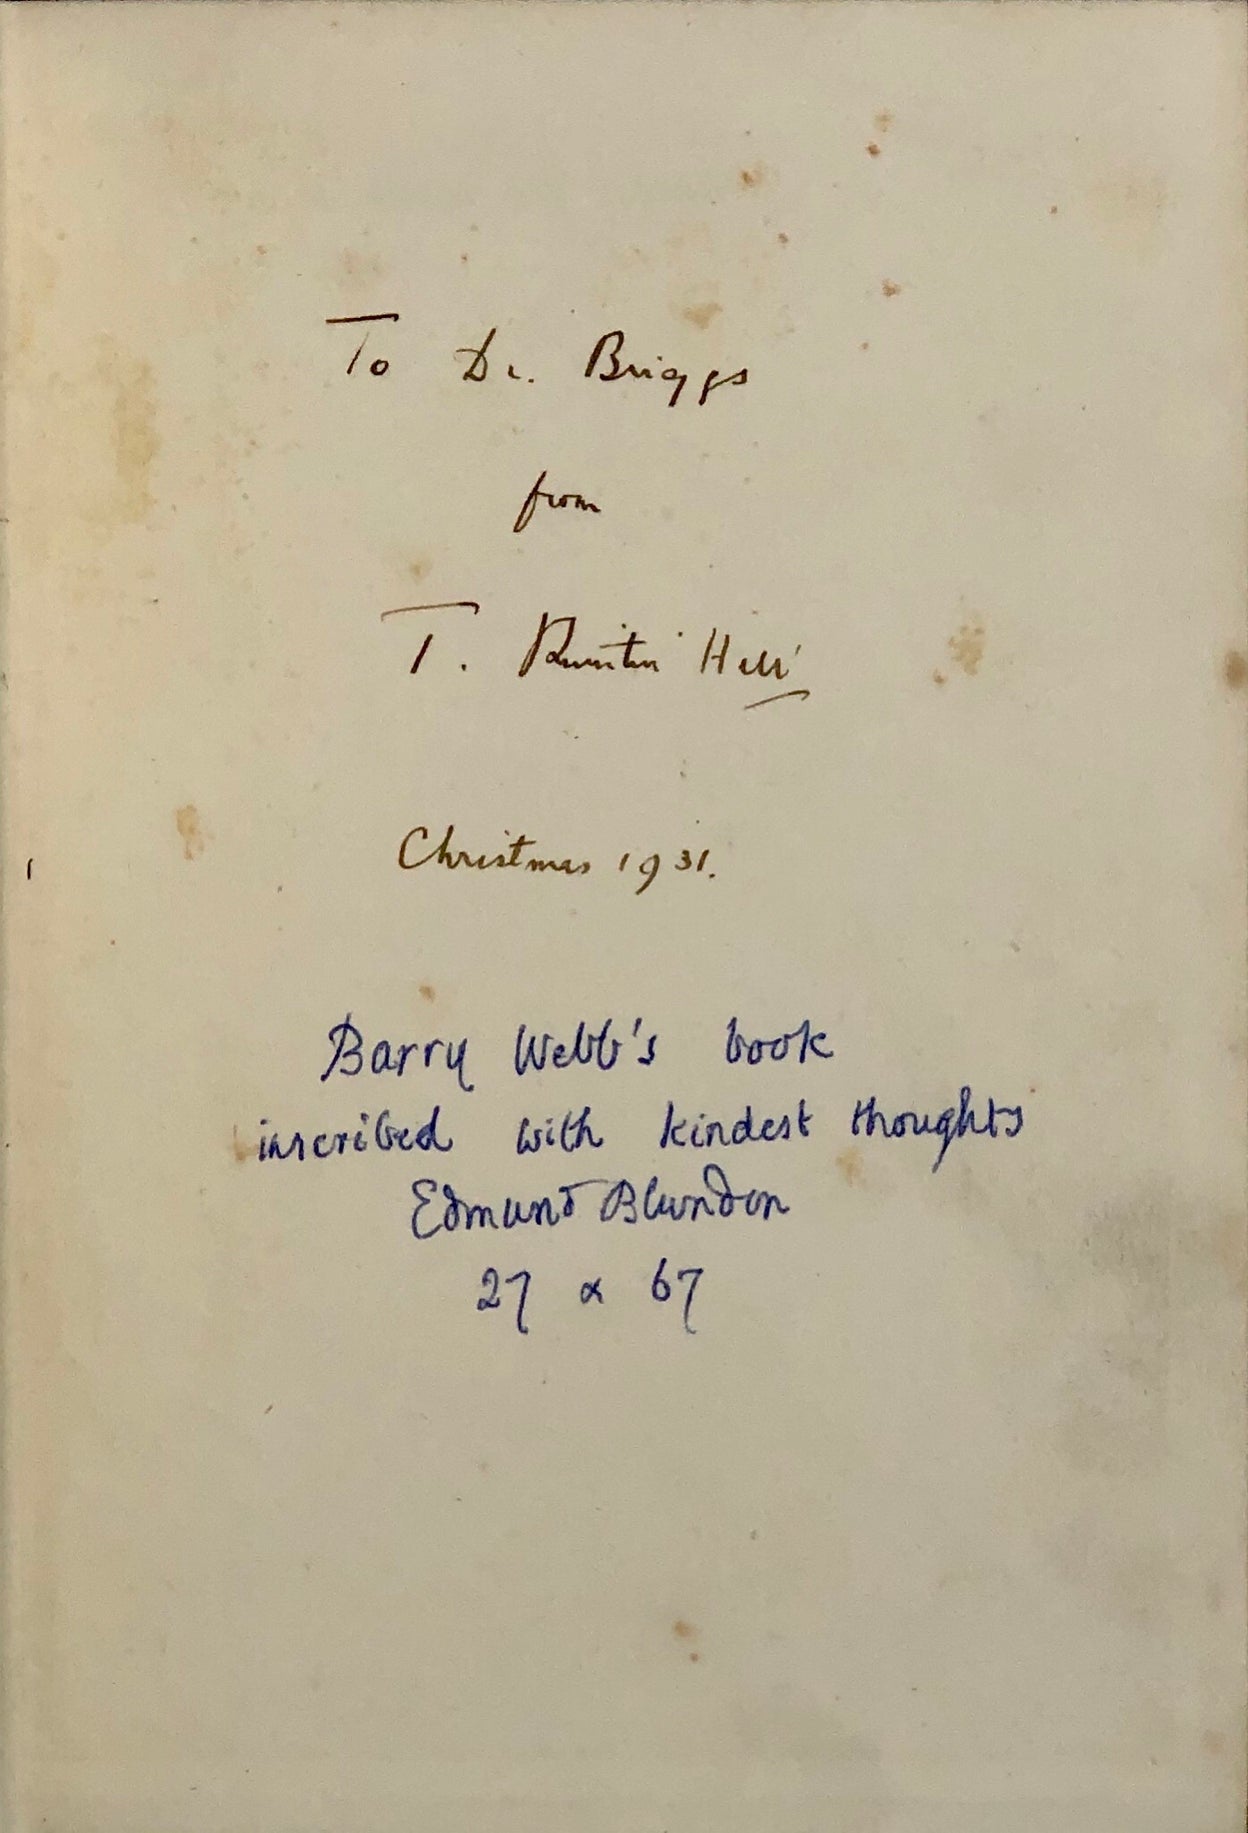 To Dr. Briggs
from
T. Quintin Hill
Christmas 1931.
Barry Webb's book
inscribed with kindest thoughts
Edmund Blunden
27 x 67